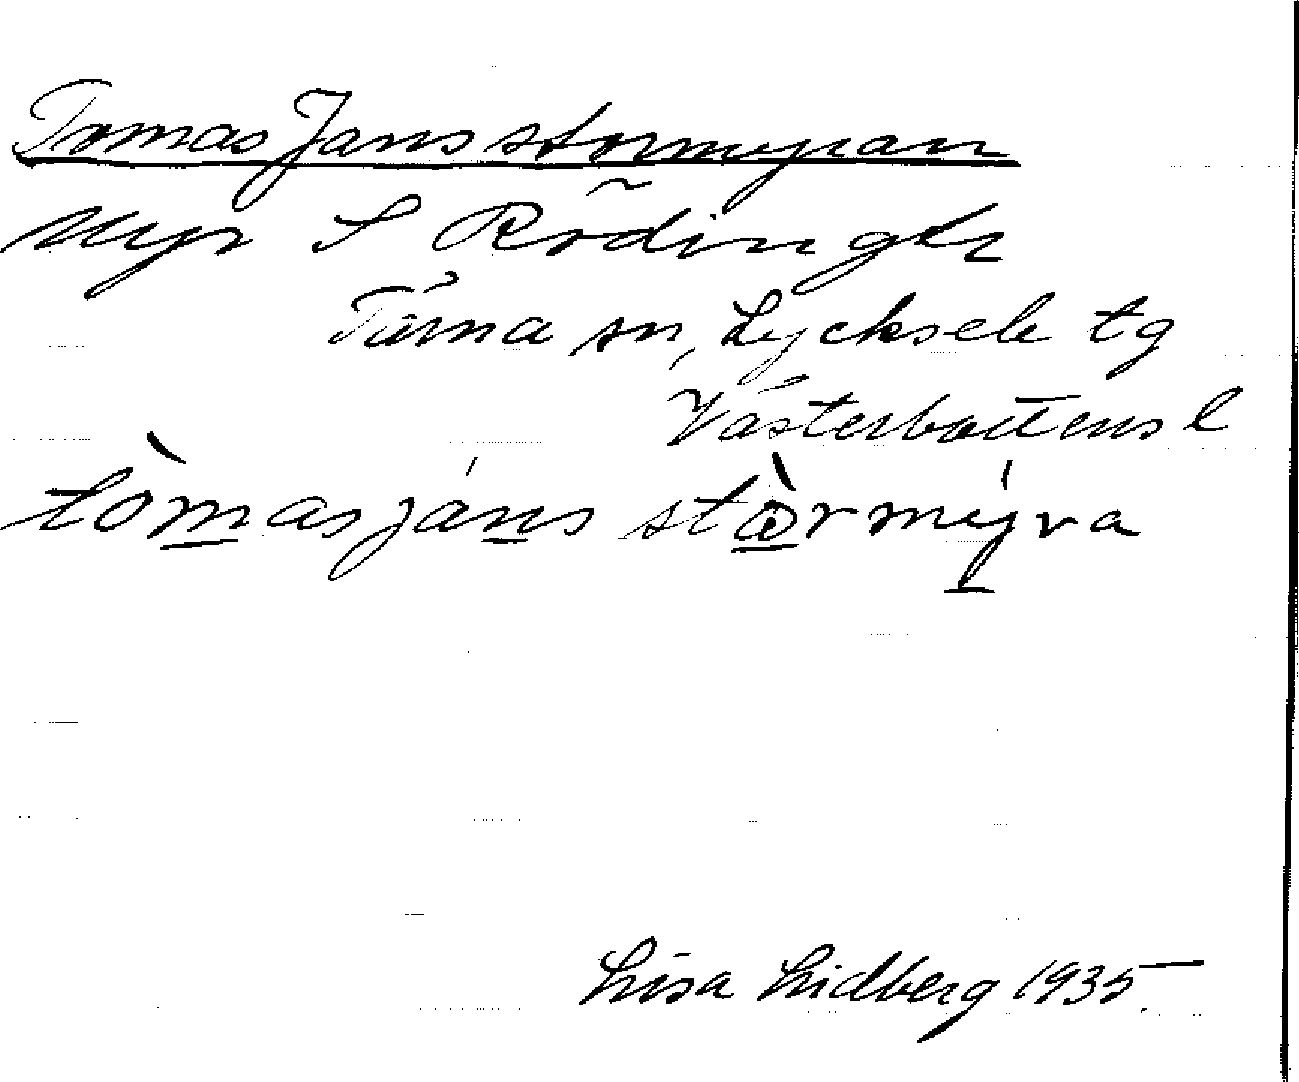 Tomas Jans stormyran
Myr S Rödingtr
Tärna sn, Lycksele tg
Västerbottens l
tòmasjáns stòrmýra
Lisa Lidberg 1935.